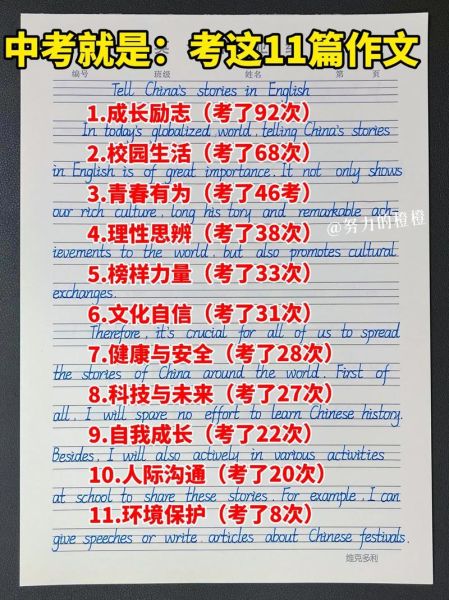 中考就是：考这11篇作文
编号 班级 姓名 第 页
Tell China's stories in English
1.成长励志（考了92次）
In today's globalized world, telling China's stories
2.校园生活（考了68次）
in English is of great importance. It not only shows
3.青春有为（考了46考）
our rich culture, long his tory and remarkable ach-
@努力的橙橙
4.理性思辨（考了38次）
ievements to the world, but also promotes cultural
5.榜样力量（考了33次）
exchanges.
6.文化自信（考了31次）
Therefore, it's crucial for all of us to spread
7.健康与安全（考了28次）
the stories of China around the world. First of
8.科技与未来（考了27次）
all, I will spare no effort to learn Chinese history.
9.自我成长（考了22次）
Besides, I will also actively in various activities
10.人际沟通（考了20次）
at school to share these stories. For example, I can
11.环境保护（考了8次）
give speeches or write articles about Chinese festivals.
维克多利